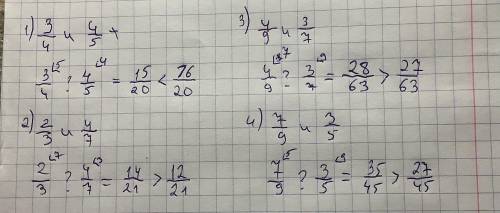 1) 3/4 и 4/5 +
3/4 ⁵ ? 4/5 ⁴ = 15/20 < 16/20
2) 2/3 и 4/7
2/3 ⁷ ? 4/7 ³ = 14/21 > 12/21
3) 4/9 и 3/7
4/9 ⁷ ? 3/7 ⁹ = 28/63 > 27/63
4) 7/9 и 3/5
7/9 ⁵ ? 3/5 ⁹ = 35/45 > 27/45